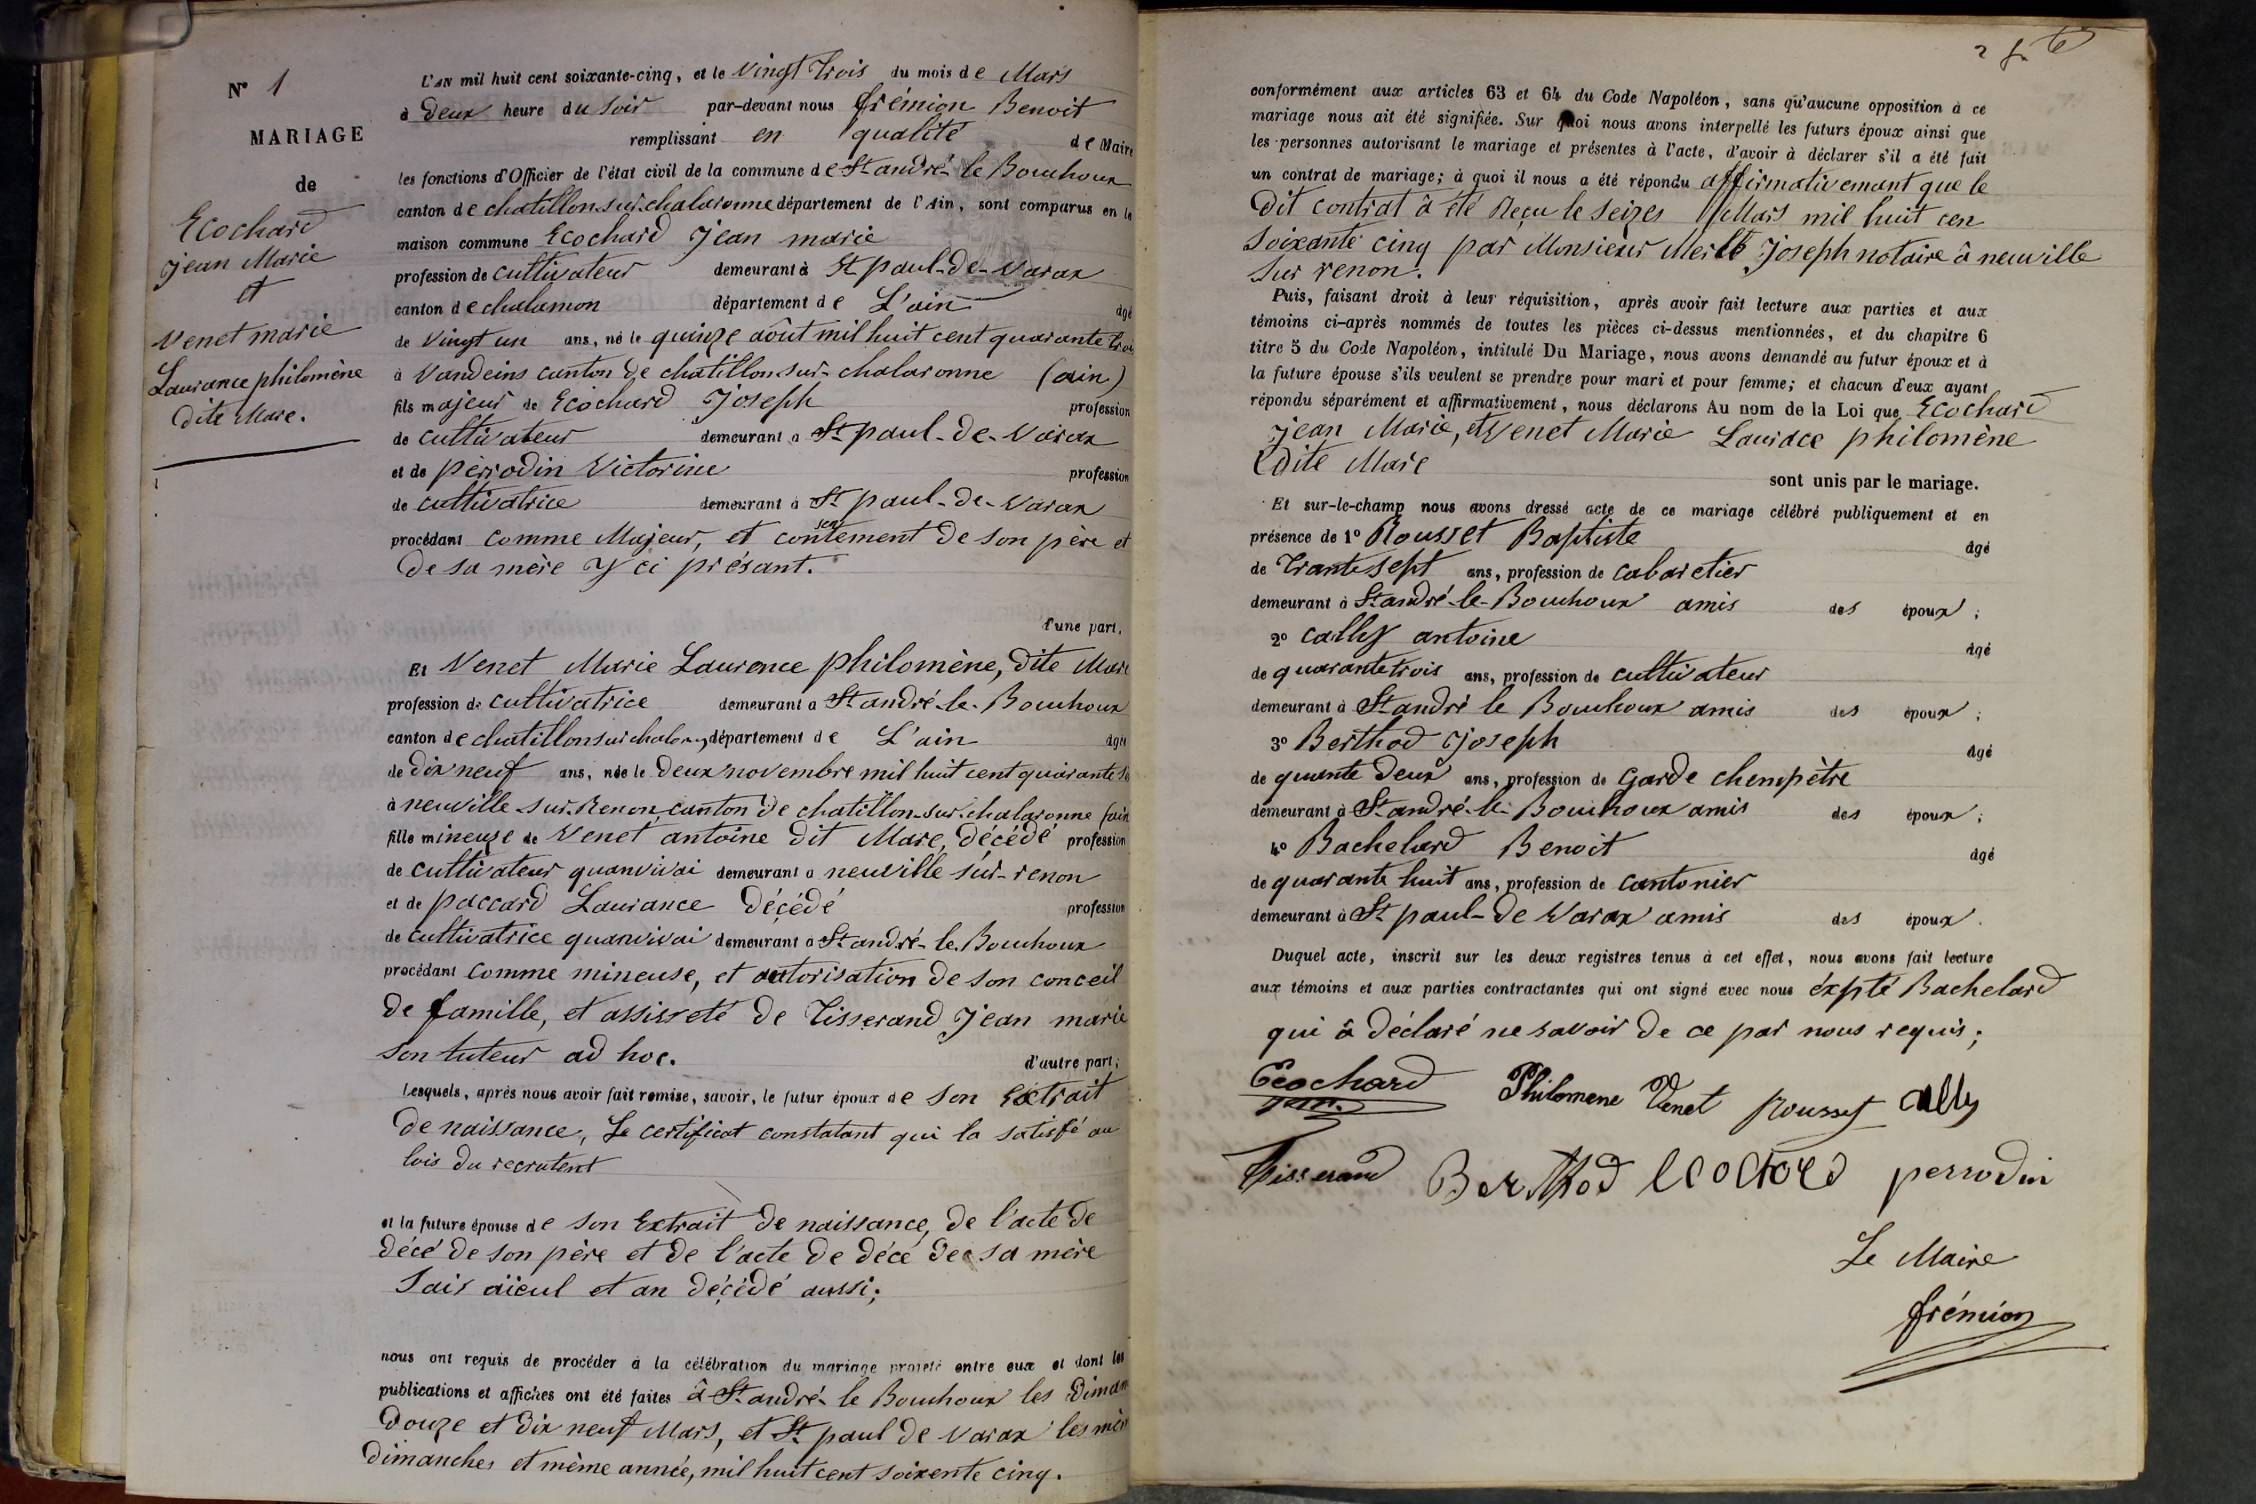 N° 1
MARIAGE
de
Ecochard
Jean Marie
et
Venet marie
Laurance philomène
dite Mare.
L'AN mil huit cent soixante-cinq, et le Vingt trois du mois de Mars
à deux heure du soir par-devant nous frémion Benoit
remplissant en qualité de Maire
les fonctions d'Officier de l'état civil de la commune de St andré-le Bouchoux
canton de chatillon sur chalaronne département de l'Ain, sont comparus en la
maison commune Ecochard Jean marie
profession de cultivateur demeurant à St paul-de-Varax
canton de chalamon département de L'ain âgé
de Vingt un ans, né le quinze août mil huit cent quarante trois
à Vandeins canton de chatillon sur-chalaronne (ain)
fils majeur de Ecochard Joseph profession
de cultivateur demeurant à St paul-de-Varax
et de perrodin Victorine profession
de cultivatrice demeurant à St paul-de-Varax
procédant comme Majeur, et consentement de son père et
de sa mère y ci présant.
d'une part,
Et Venet Marie Laurence philomène, dite Mare
profession de cultivatrice demeurant à St andré-le-Bouchoux
canton de chatillon sur chalarony département de L'ain âgée
de dix neuf ans, née le deux novembre mil huit cent quarante
à neuville-sur-Renon canton de chatillon-sur-chalaronne (ain
fille mineuze de Venet antoine dit Mare, décédé profession
de cultivateur quanvivai demeurant à neuville sur-renon
et de paccard Laurance décédé profession
de cultivatrice quanvivai demeurant à St andré-le Bouchoux
procédant comme mineuse, et autorisation de son conceil
de famille, et assisteté de Tisserand Jean marie
son tuteur ad hoc. d'autre part;
Lesquels, après nous avoir fait remise, savoir, le futur époux de son Extrait
de naissance, Le certificat constatant qui la satisfé au
lois du recrutent
et la future épouse de son Extrait de naissance, de l'acte de
décé de son père et de l'acte de décé de sa mère
Sais aïeul et an décédé aussi;
nous ont requis de procéder à la célébration du mariage projeté entre eux et dont les
publications et affiches ont été faites à St andré-le Bouchoux les diman
douze et dix neuf Mars, et St paul de Varax les mêm
dimanches et même année, mil huit cent soixente cinq.
conformément aux articles 63 et 64 du Code Napoléon, sans qu'aucune opposition à ce
mariage nous ait été signifiée. Sur quoi nous avons interpellé les futurs époux ainsi que
les personnes autorisant le mariage et présentes à l'acte, d'avoir à déclarer s'il a été fait
un contrat de mariage; à quoi il nous a été répondu affirmativemant que le
dit contrat à été Reçu le seizes Mars mil huit cen
soixante cinq par Monsieur Merle Joseph notaire à neuville
sur renon.
Puis, faisant droit à leur réquisition, après avoir fait lecture aux parties et aux
témoins ci-après nommés de toutes les pièces ci-dessus mentionnées, et du chapitre 6
titre 5 du Code Napoléon, intitulé Du Mariage, nous avons demandé au futur époux et à
la future épouse s'ils veulent se prendre pour mari et pour femme; et chacun d'eux ayant
répondu séparément et affirmativement, nous déclarons Au nom de la Loi que Ecochard
Jean Marie, et Venet Marie Laurace philomène
dite Mare
sont unis par le mariage.
Et sur-le-champ nous avons dressé acte de ce mariage célébré publiquement et en
présence de 1° Rousset Baptiste âgé
de trante sept ans, profession de cabaretier
demeurant à St andré-le-Bouchoux amis des époux;
2° Cally antoine âgé
de quarante trois ans, profession de cultivateur
demeurant à St andré le Bouchoux amis des époux;
3° Berthod Joseph âgé
de quante deux ans, profession de Garde chempètre
demeurant à St andré-le-Bouchoux amis des époux;
4° Bachelard Benoit âgé
de quarante huit ans, profession de cantonier
demeurant à St paul-de Varax amis des époux.
Duquel acte, inscrit sur les deux registres tenus à cet effet, nous avons fait lecture
aux témoins et aux parties contractantes qui ont signé avec nous éxpté Bachelard
qui à déclaré ne savoir de ce par nous requis;
Ecochard Philomene Venet Rousset Cally
Jean.
Tisserand Berthod ecochard perrodin
Le Maire
frémion